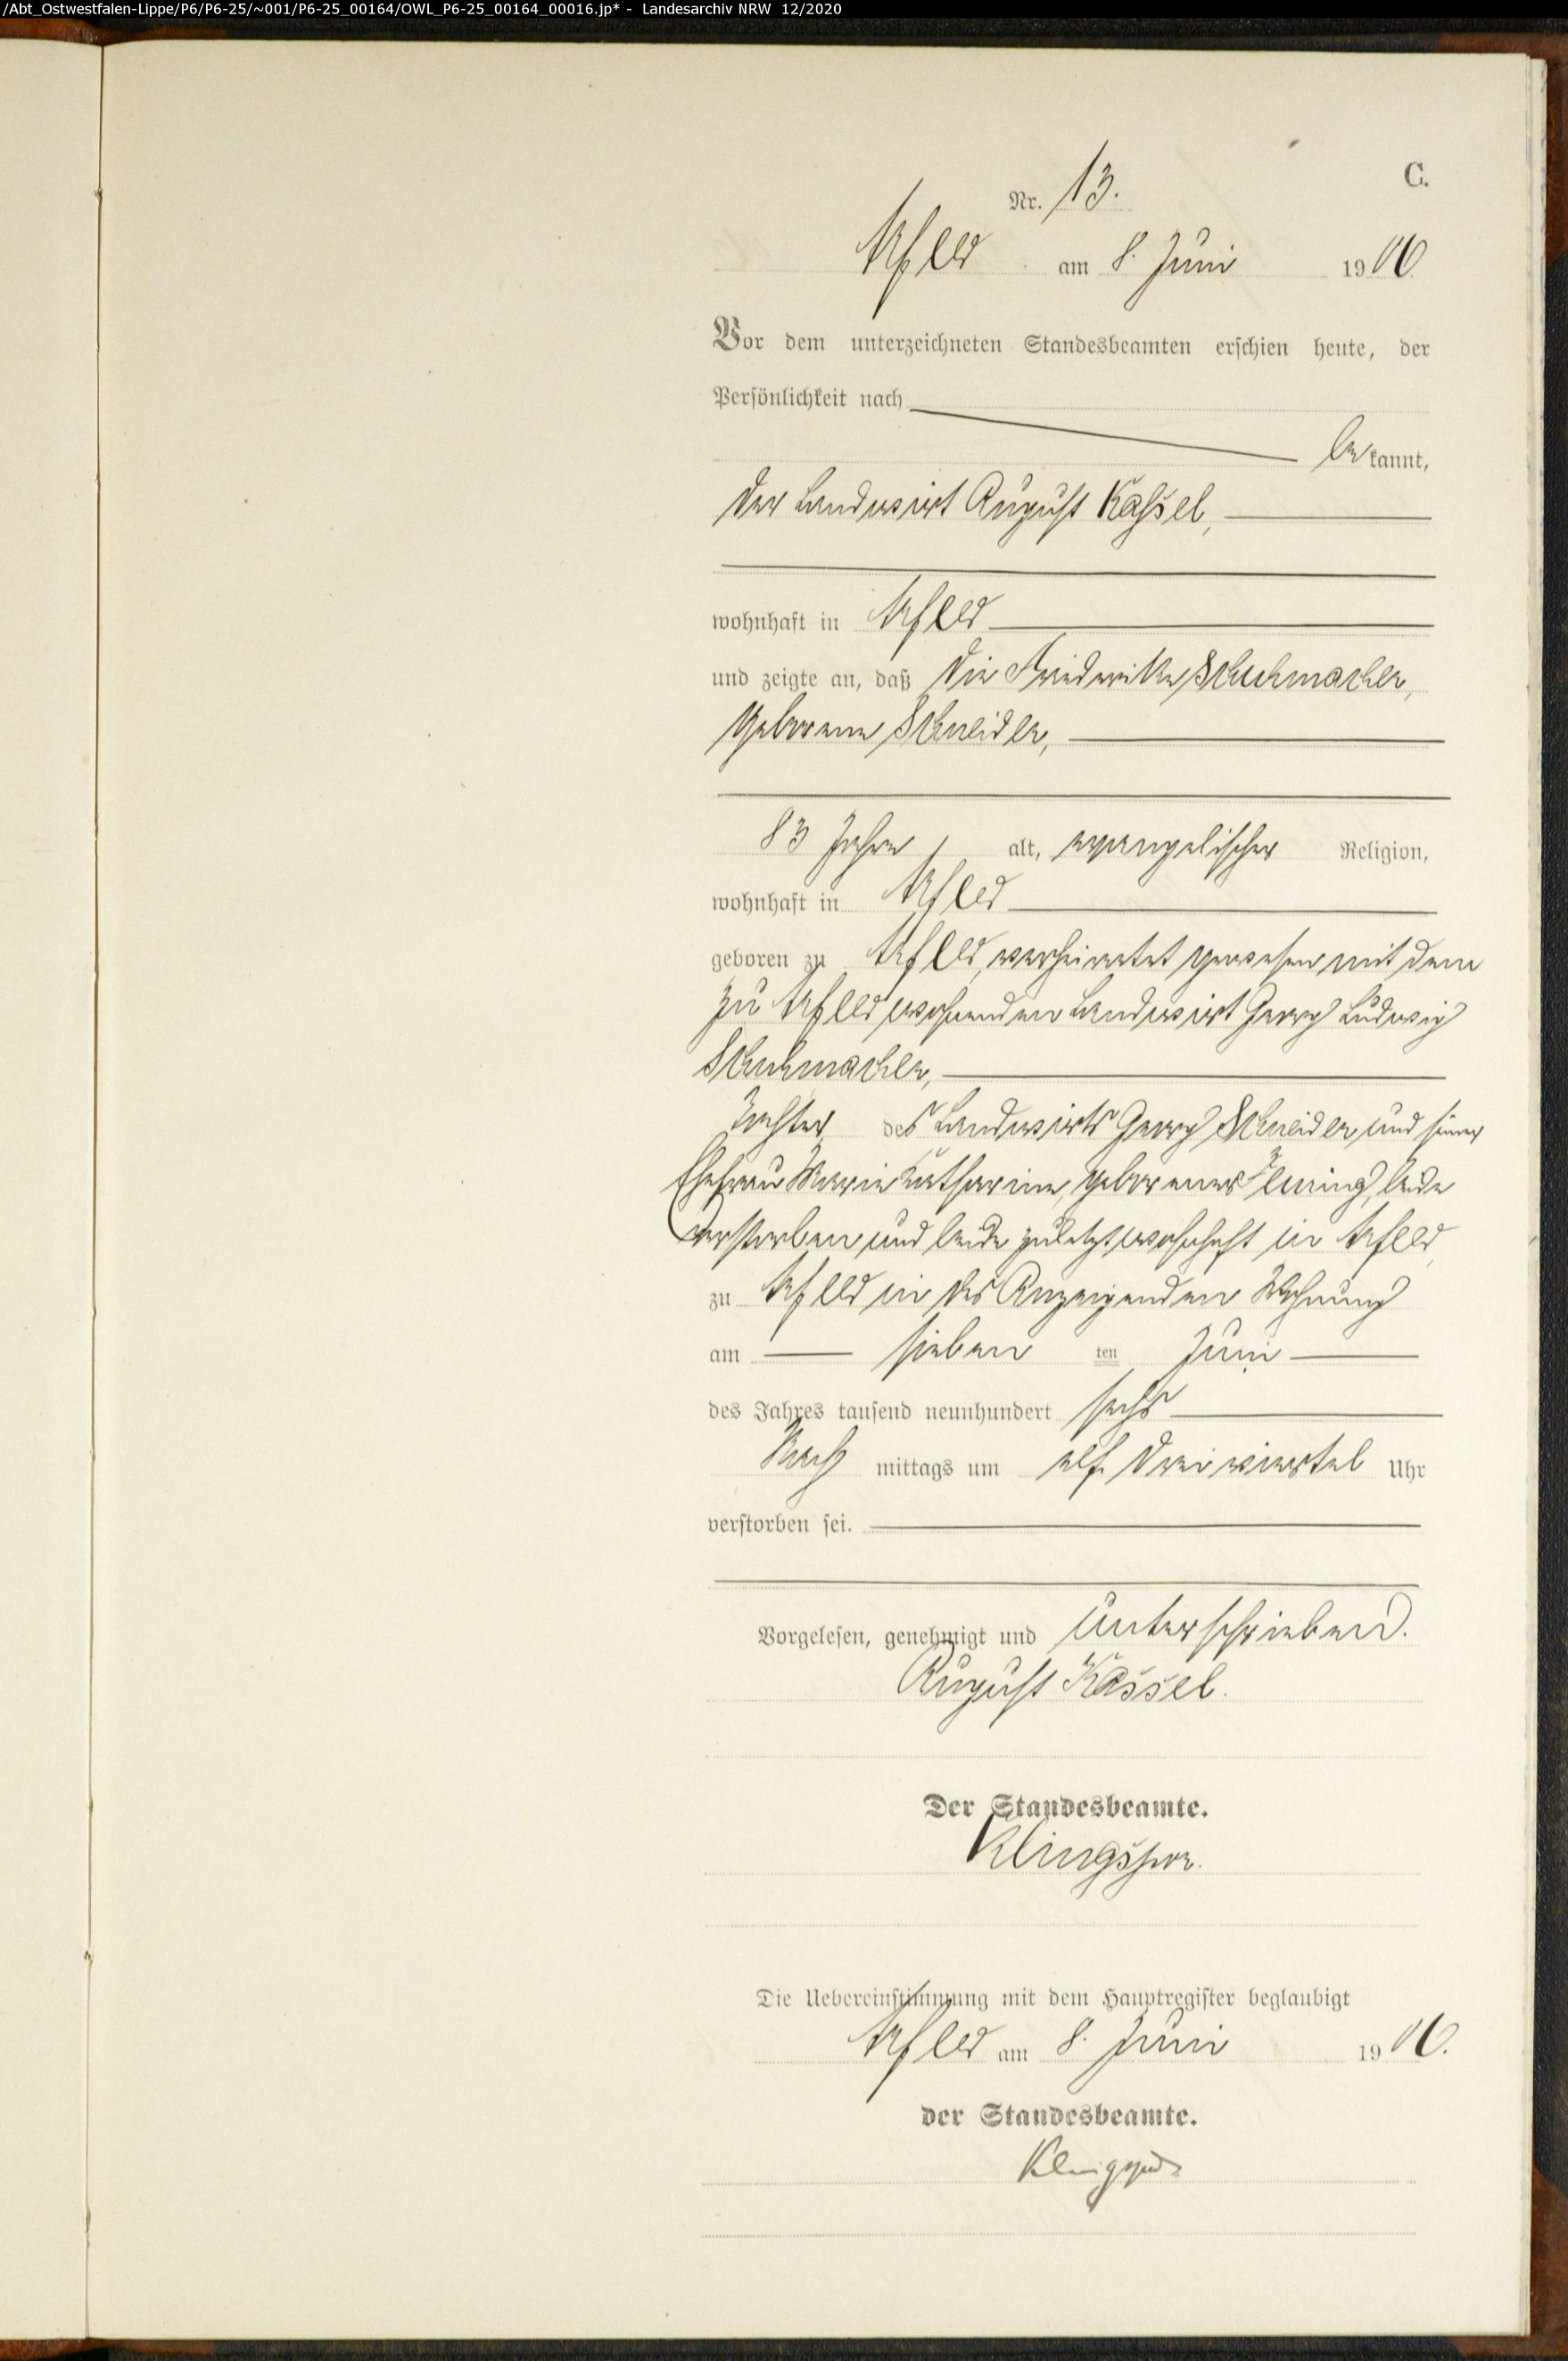 /Abt_Ostwestfalen-Lippe/P6/P6-25/~001/P6-25_00164/OWL_P6-25_00164_00016.jp* - Landesarchiv NRW 12/2020
C.
Nr. 13.
Arfeld am 8. Juni 1906
Vor dem unterzeichneten Standesbeamten erschien heute, der
Persönlichkeit nach
bekannt,
der Landwirt August Kassel,
wohnhaft in Arfeld
und zeigte an, daß die Friederike Schuhmacher,
geborene Schneider,
83 Jahre, alt, evangelischer Religion,
wohnhaft in Arfeld
geboren zu Arfeld, verheiratet gewesen mit dem
zu Arfeld wohnenden Landwirt Georg Ludwig
Schuhmacher,
Tochter des Landwirts Georg Schneider und seiner
Ehefrau Marie Katharine, geborener beide
verstorben und beide zuletzt wohnhaft in Arfeld,
zu Arfeld in des Anzeigenden Wohnung
am sieben ten Juni
des Jahres tausend neunhundert sechs
Nach mittags um elf dreiviertel Uhr
verstorben sei.
Vorgelesen, genehmigt und unterschrieben.
August Kassel.
Der Standesbeamte.
Klingspor.
Die Uebereinstimmung mit dem Hauptregister beglaubigt
Arfeld am 8. Juni 1906.
der Standesbeamte.
Klingspor